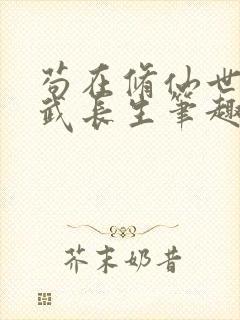 苟在脩仙世
武长生笔趣
芥末奶昔